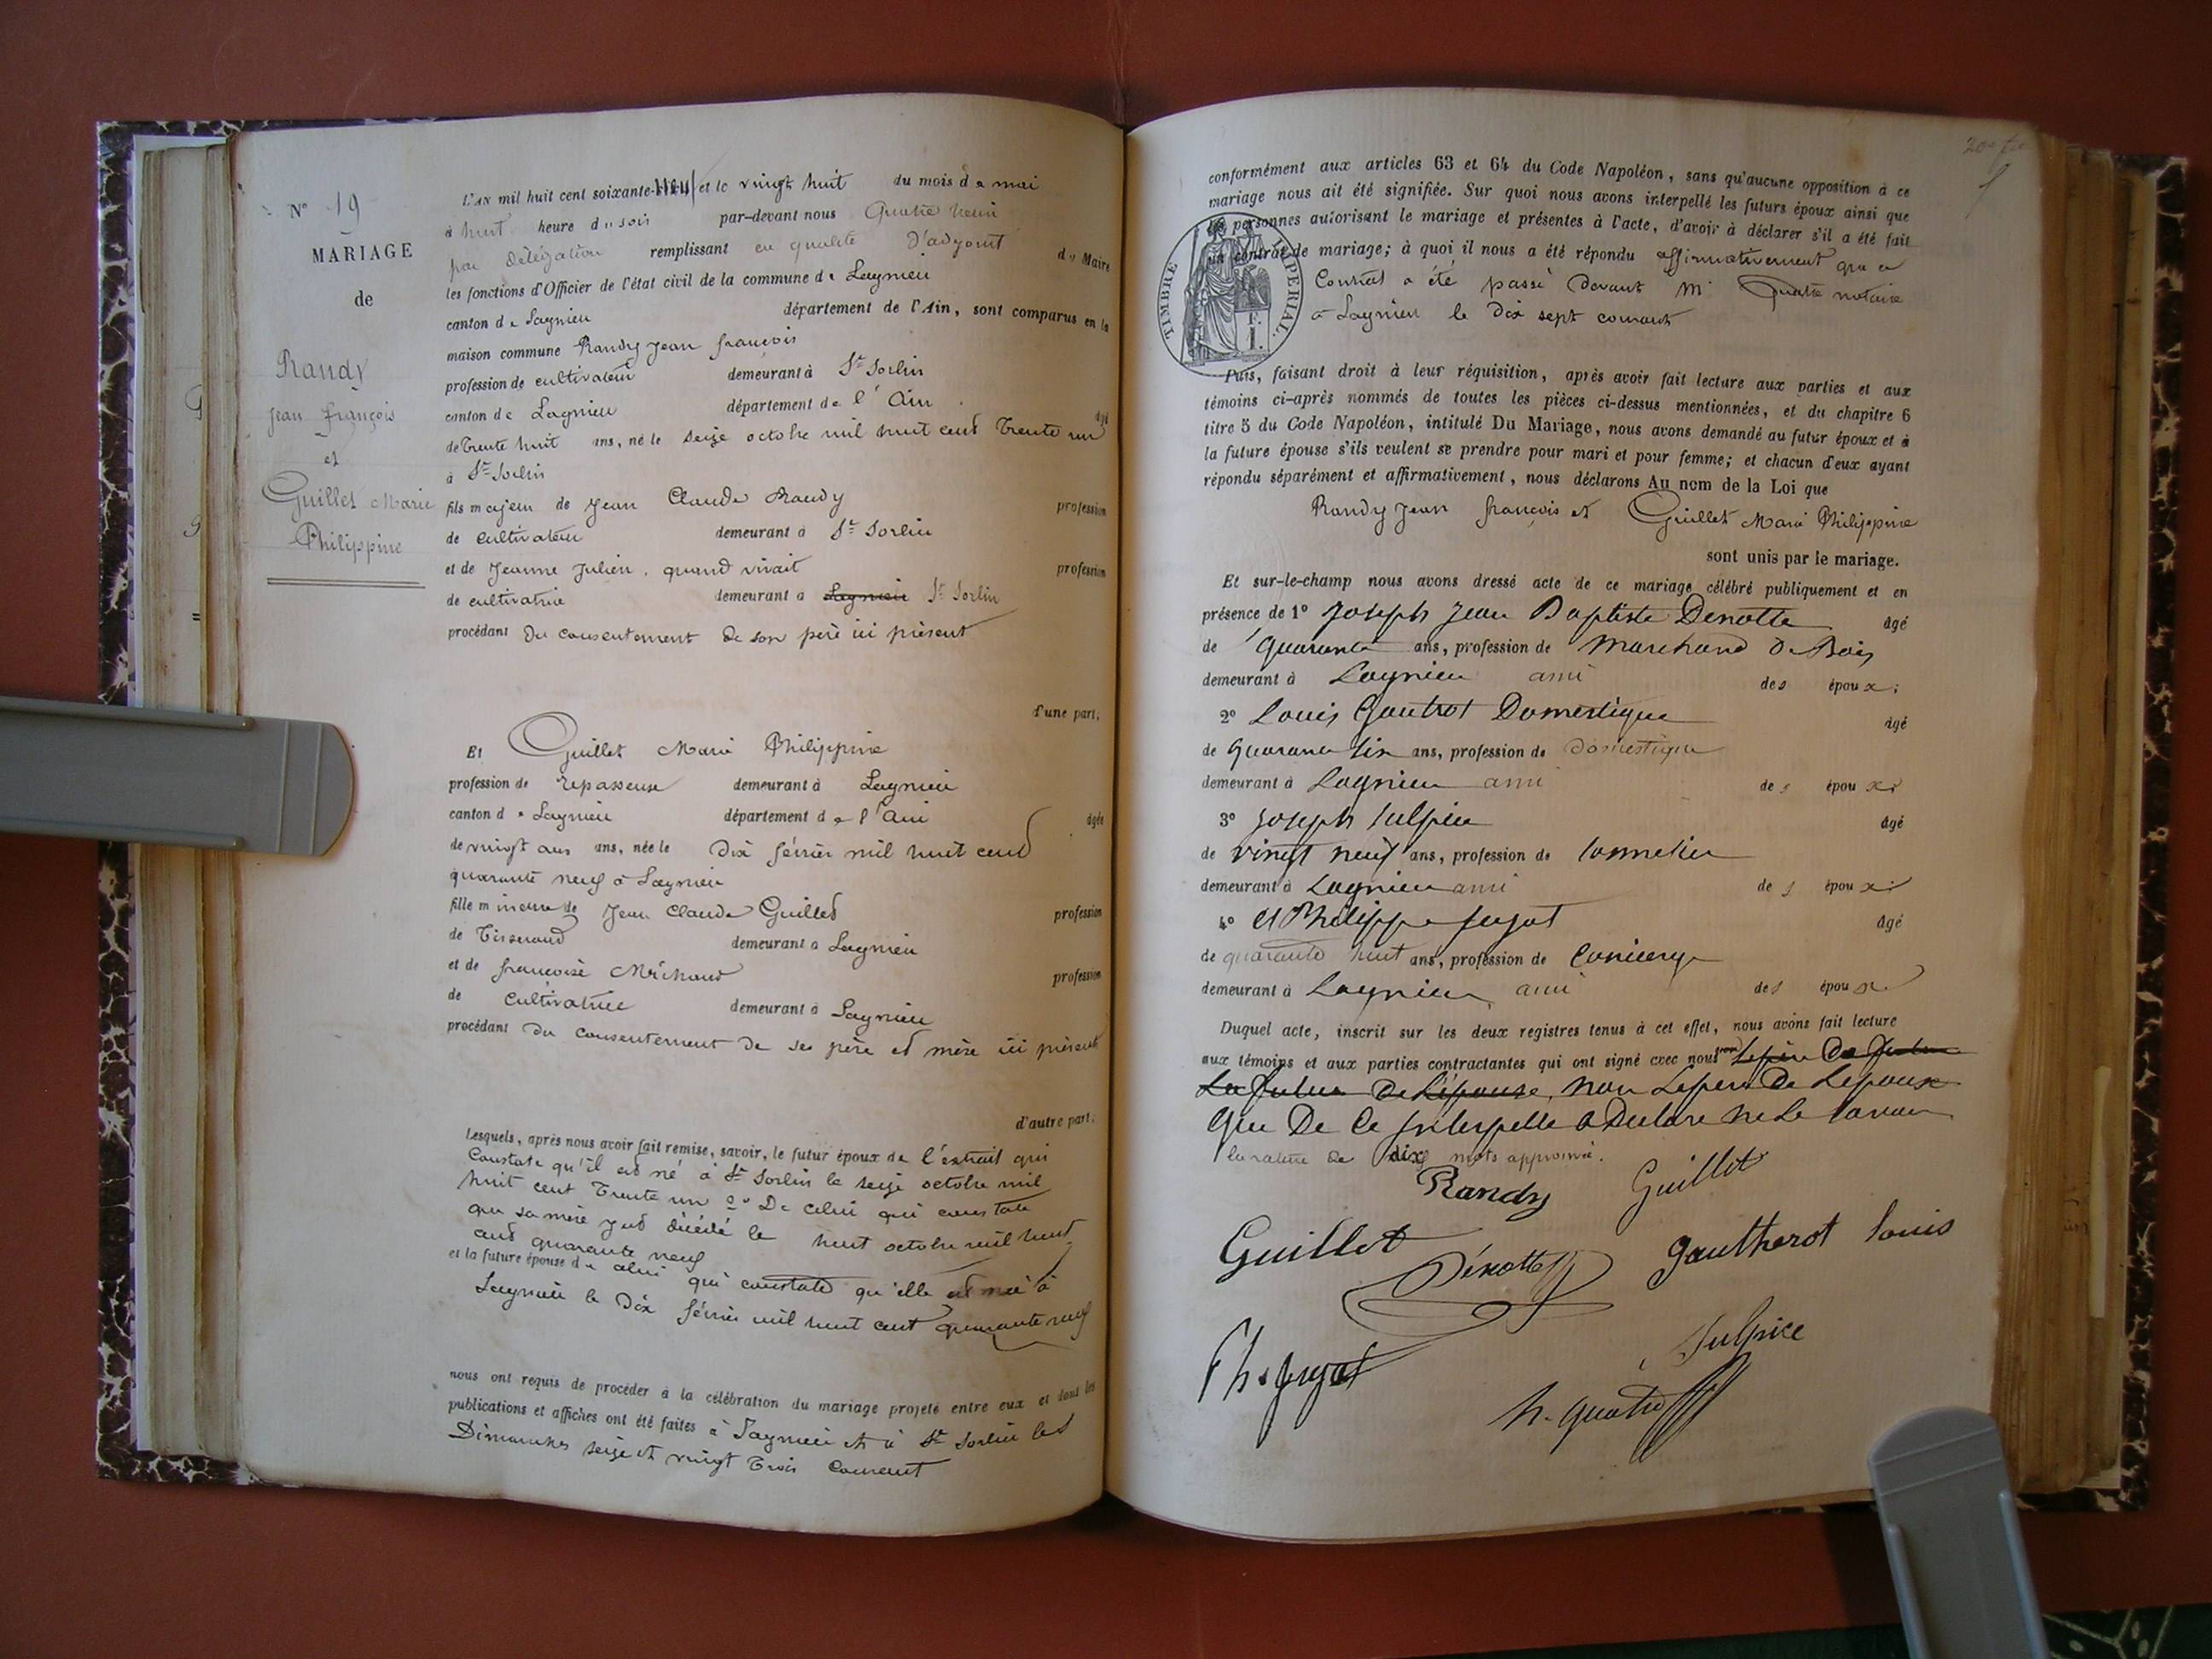 N° 19
MARIAGE
de
Randy
Jean françois
et
Guillet Marie
Philippine
L'AN mil huit cent soixante-neuf et le vingt huit du mois de mai
à huit heure du soir par-devant nous Quatre henri
par délégation remplissant en qualité d'adjoint du Maire
les fonctions d'Officier de l'état civil de la commune de Lagnieu
canton de Lagnieu département de l'Ain, sont comparus en la
maison commune Randy Jean françois
profession de cultivateur demeurant à St Sorlin
canton de Lagnieu département de l'Ain âgé
de Trente huit ans, né le seize octobre mil huit cent Trente un
à St Sorlin
fils majeur de Jean Claude Randy profession
de cultivateur demeurant à St Sorlin
et de Jeanne Julien, quand vivait profession
de cultivatrice demeurant à Lagnieu St Sorlin
procédant du consentement de son père ici présent
d'une part,
Et Guillet Marie Philippine
profession de repasseuse demeurant à Lagnieu
canton de Lagnieu département de l'Ain âgée
de vingt ans ans, née le dix février mil huit cent
quarante neuf à Lagnieu
fille mineure de Jean Claude Guillet profession
de Tisserand demeurant à Lagnieu
et de françoise Michaud profession
de cultivatrice demeurant à Lagnieu
procédant du consentement de ses père et mère ici présents
d'autre part.
Lesquels, après nous avoir fait remise, savoir, le futur époux de l'extrait qui
constate qu'il est né à St Sorlin le seize octobre mil
huit cent Trente un 2° De celui qui constate
que sa mère y est décédé le huit octobre mil huit
cent quarante neuf
et la future épouse de celui qui constate qu'elle est née à
Lagnieu le dix février mil huit cent quarante neuf
nous ont requis de procéder à la célébration du mariage projeté entre eux et dont les
publications et affiches ont été faites à Lagnieu et à St Sorlin les
Dimanches seize et vingt Trois courant
conformément aux articles 63 et 64 du Code Napoléon, sans qu'aucune opposition à ce
mariage nous ait été signifiée. Sur quoi nous avons interpellé les futurs époux ainsi que
les personnes autorisant le mariage et présentes à l'acte, d'avoir à déclarer s'il a été fait
un contrat de mariage; à quoi il nous a été répondu affirmativement que ce
Contrat a été passé devant Me Quatre notaire
à Lagnieu le dix sept courant
TIMBRE IMPERIAL.
Puis, faisant droit à leur réquisition, après avoir fait lecture aux parties et aux
témoins ci-après nommés de toutes les pièces ci-dessus mentionnées, et du chapitre 6
titre 5 du Code Napoléon, intitulé Du Mariage, nous avons demandé au futur époux et à
la future épouse s'ils veulent se prendre pour mari et pour femme; et chacun d'eux ayant
répondu séparément et affirmativement, nous déclarons Au nom de la Loi que
Randy Jean françois et Guillet Marie Philippine
sont unis par le mariage.
Et sur-le-champ nous avons dressé acte de ce mariage célébré publiquement et en
présence de 1° Joseph Jean Baptiste Denotte âgé
de quarante ans, profession de Marchand de Bois
demeurant à Lagnieu ami des époux;
2° Louis Gautrot Domestique âgé
de quarante six ans, profession de domestique
demeurant à Lagnieu ami des époux;
3° Joseph Sulpice âgé
de vingt neuf ans, profession de tonnelier
demeurant à Lagnieu ami des époux;
4° et Philippe Jugat âgé
de quarante huit ans, profession de concierge
demeurant à Lagnieu ami des époux
Duquel acte, inscrit sur les deux registres tenus à cet effet, nous avons fait lecture
aux témoins et aux parties contractantes qui ont signé avec nous
de l'épouse, non Le père De Lepoux
que De Ce Interpellé a Déclaré ne Le savoir
la rature de dix mots approuvée.
Randy Guillet
Guillet Dénotte gautherot louis
Ph. Jugat Sulpice
h. quatre